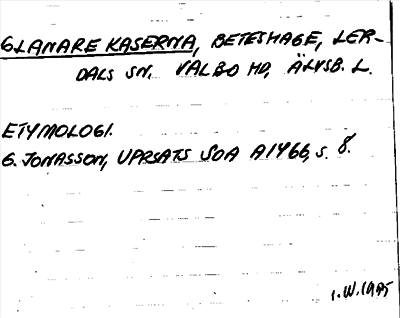 GLANARE KASERNA, BETESHAGE, LER-
DALS SN, VALBO HD, ÄLVSB. L.
ETYMOLOGI.
G. JONASSON, UPPSATS SOA A1466, s. 8.
I.W. 1985